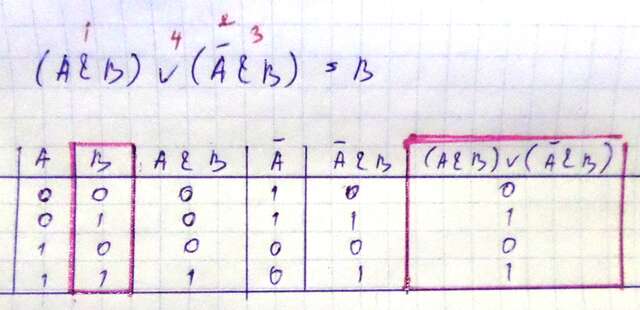 1 4 2 3
(A & B) v (Ā & B) = B
A B A & B Ā Ā & B (A & B) v (Ā & B)
0 0 0 1 0 0
0 1 0 1 1 1
1 0 0 0 0 0
1 1 1 0 1 1